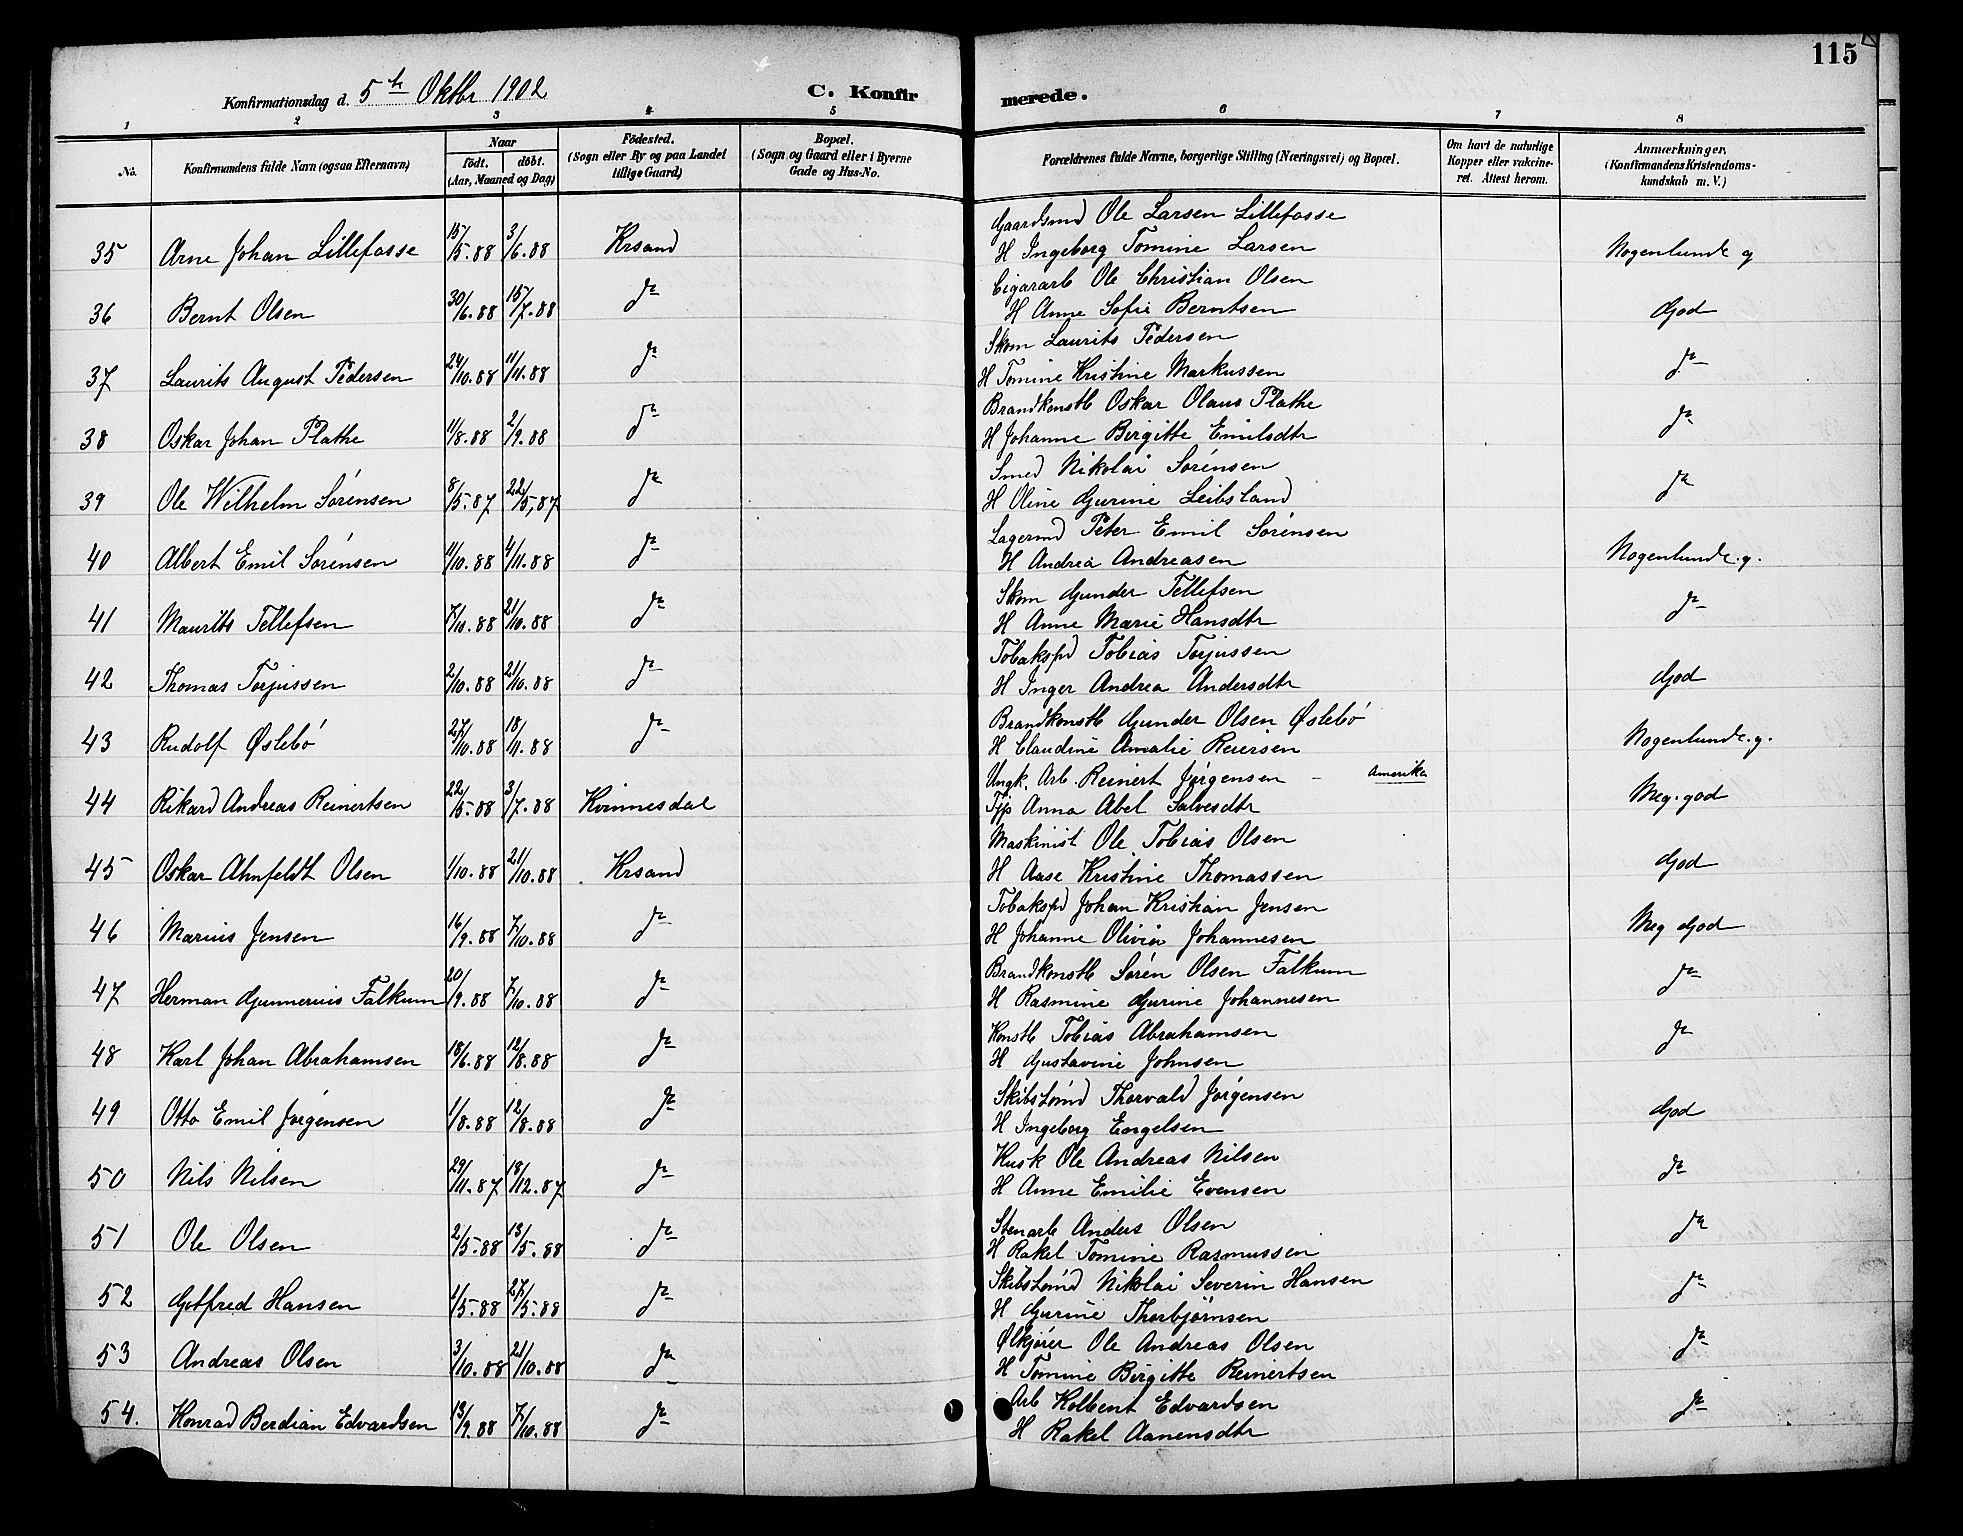 115
Konfirmationsdag d. 5te Oktbr 1902 C. Konfir merede.
1 2 3 4 5 6 7 8
No. Konfirmandens fulde Navn (ogsaa Efternavn) Naar födt. döbt. (Aar, Maaned og Dag) Födested. (Sogn eller By og paa Landet tillige Gaard) Bopæl. (Sogn og Gaard eller i Byerne Gade og Hus-No. Forældrenes fulde Navne, borgerlige Stilling (Næringsvei) og Bopæl. Om havt de naturlige Kopper eller vakcineret. Attest herom. Anmærkninger, (Konfirmandens Kristendomskundskab m. V.)
Gaardsmd Ole Larsen Lillefosse
35 Arne Johan Lillefosse 15/5.88 3/6.88 Krsand H Ingeborg Tomine Larsen Nogenlunde g
Cigararb Ole Christian Olsen
36 Bernt Olsen 30/6.88 15/7.88 do H Anne Sofie Berntsen God
Skom Laurits Pedersen
37 Laurits August Pedersen 24/10.88 11/11.88 do H Tomine Kristine Markussen do
Brandkonstb Oskar Olaus Plathe
38 Oskar Johan Plathe 11/8.88 2/9.88 do H Johanne Birgitte Emilsdtr do
Smed Nikolai Sørensen
39 Ole Wilhelm Sørensen 8/5.87 22/5,87 do H Oline Gurine Leibsland do
Lagermd Peter Emil Sørensen
40 Albert Emil Sørensen 11/10.88 4/11.88 do H Andrea Andreasen Nogenlunde.g.
Skom Gunder Tellefsen
41 Maurits Tellefsen 7/10.88 21/10.88 do H Anne Marie Hansdtr do
Tobakspd Tobias Torjussen
42 Thomas Torjussen 2/10.88 21/10.88 do H Inger Andrea Andersdtr God
Brandkonstb Gunder Olsen Øslebø
43 Rudolf Øslebø 27/10.88 18/11.88 do H Claudine Amalie Reiersen Nogenlunde.g.
Ungk. Arb. Reinert Jørgensen - Amerika
44 Rikard Andreas Reinertsen 22/5.88 3/7.88 Kvinnesdal Tjp Anna Abel Salvesdtr Meg. god
Maskinist Ole Tobias Olsen
45 Oskar Ahnfeldt Olsen 1/10.88 21/10.88 Krsand H Aase Kristine Thomassen God
Tobakspd Johan Kristian Jensen
46 Marius Jensen 16/9.88 7/10.88 do H Johanne Olivia Johannesen Meg God
Brandkonstb Søren Olsen Falkum
47 Herman Gunnerius Falkum 20/9.88 7/10.88 do H Rasmine Gurine Johannesen do
Konstb Tobias Abrahamsen
48 Karl Johan Abrahamsen 18/6.88 12/8.88 do H Gustavine Johnsen do
Skibstømd Thorvald Jørgensen
49 Otto Emil Jørgensen 1/8.88 12/8.88 do H Ingeborg Engelsen God
Kusk Ole Andreas Nilsen
50 Nils Nilsen 29/11.87 18/12.87 do H Anne Emilie Evensen do
Stenarb Anders Olsen
51 Ole Olsen 2/5.88 13/5.88 do H Rakel Tomine Rasmussen do
Skibstømd Nikolai Severin Hansen
52 Gotfred Hansen 1/5.88 27/5.88 do H Gurine Thorbjørnsen do
Ølkjører Ole Andreas Olsen
53 Andreas Olsen 3/10.88 21/10.88 do H Tomine Birgitte Reinertsen do
Arb Kolbent Edvardsen
54. Konrad Berdian Edvardsen 13/9.88 7/10.88 do H Rakel Aanensdtr do